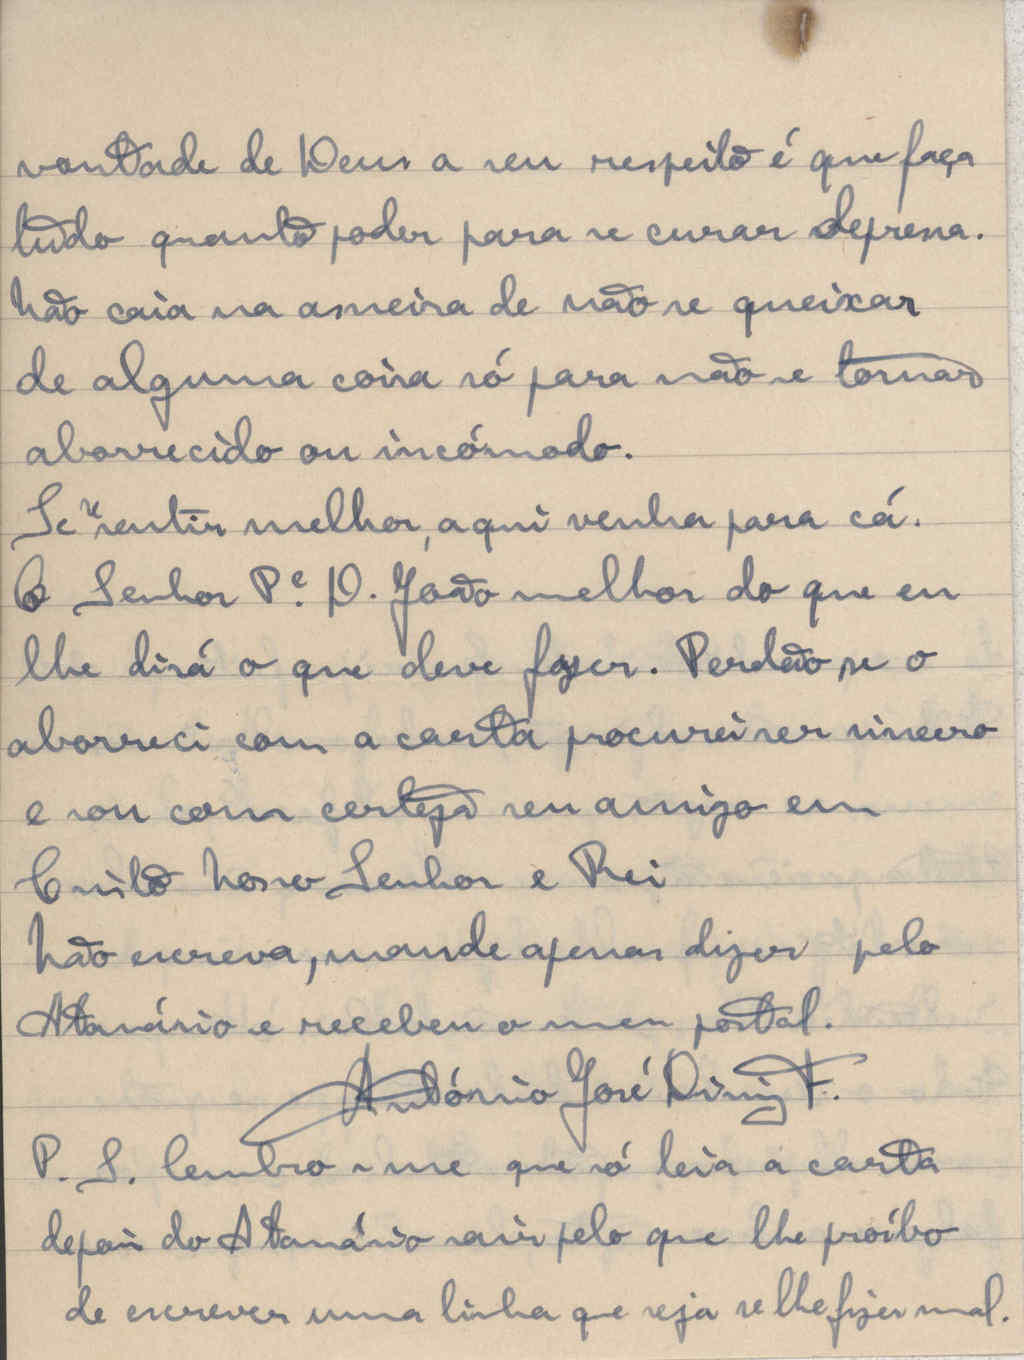 vontade de Deus a seu respeito é que faça
tudo quanto poder para se curar depressa.
Não caia na asneira de não se queixar
de alguma coisa só para não se tornar
aborrecido ou incómodo.
Se se sentir melhor, aqui venha para cá.
O Senhor Pe. D. João melhor do que eu
lhe dirá o que deve fazer. Perdão se o
aborreci com a carta procurei ser sincero
e sou com certeza seu amigo em
Cristo Nosso Senhor e Rei
Não escreva, mande apenas dizer pelo
Atanásio e recebeu o meu postal.
António José Diniz F.
P. S. lembro-me que só leia a carta
depois do Atanásio sair pelo que lhe proíbo
de escrever uma linha que seja se lhe fizer mal.